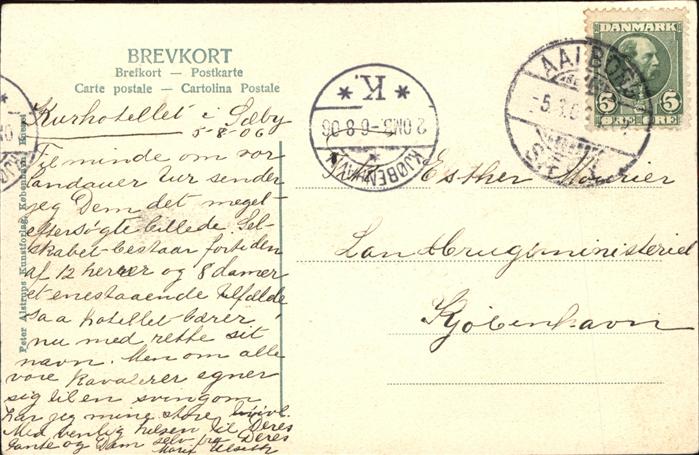 BREVKORT
Brefkort — Postkarte
Carte postale — Cartolina Postale
Kurhotellet i Sæby
5-8-06
Til minde om vor
Landauer tur sender
jeg Dem det meget
eftersøgte billede. Sel-
skabet bestaar fortiden
af 12 herrer og 8 damer
et enestaaende tilfælde
saa hotellet bærer
nu med rette sit
navn. Men om alle
vore Kavalerer egner
sig til en svingom
har jeg mine store tvivl.
Med venlig hilsen til Deres
Tante og Dem selv fra Deres
Marie
Peter Alstrups Kunstforlag, København
DANMARK
5 5
ØRE
AALBORG
KJØBENHAVN
K.
2 OMB 6-8-06
Esther Mourier
Landbrugsministeriet
Kjöbenhavn